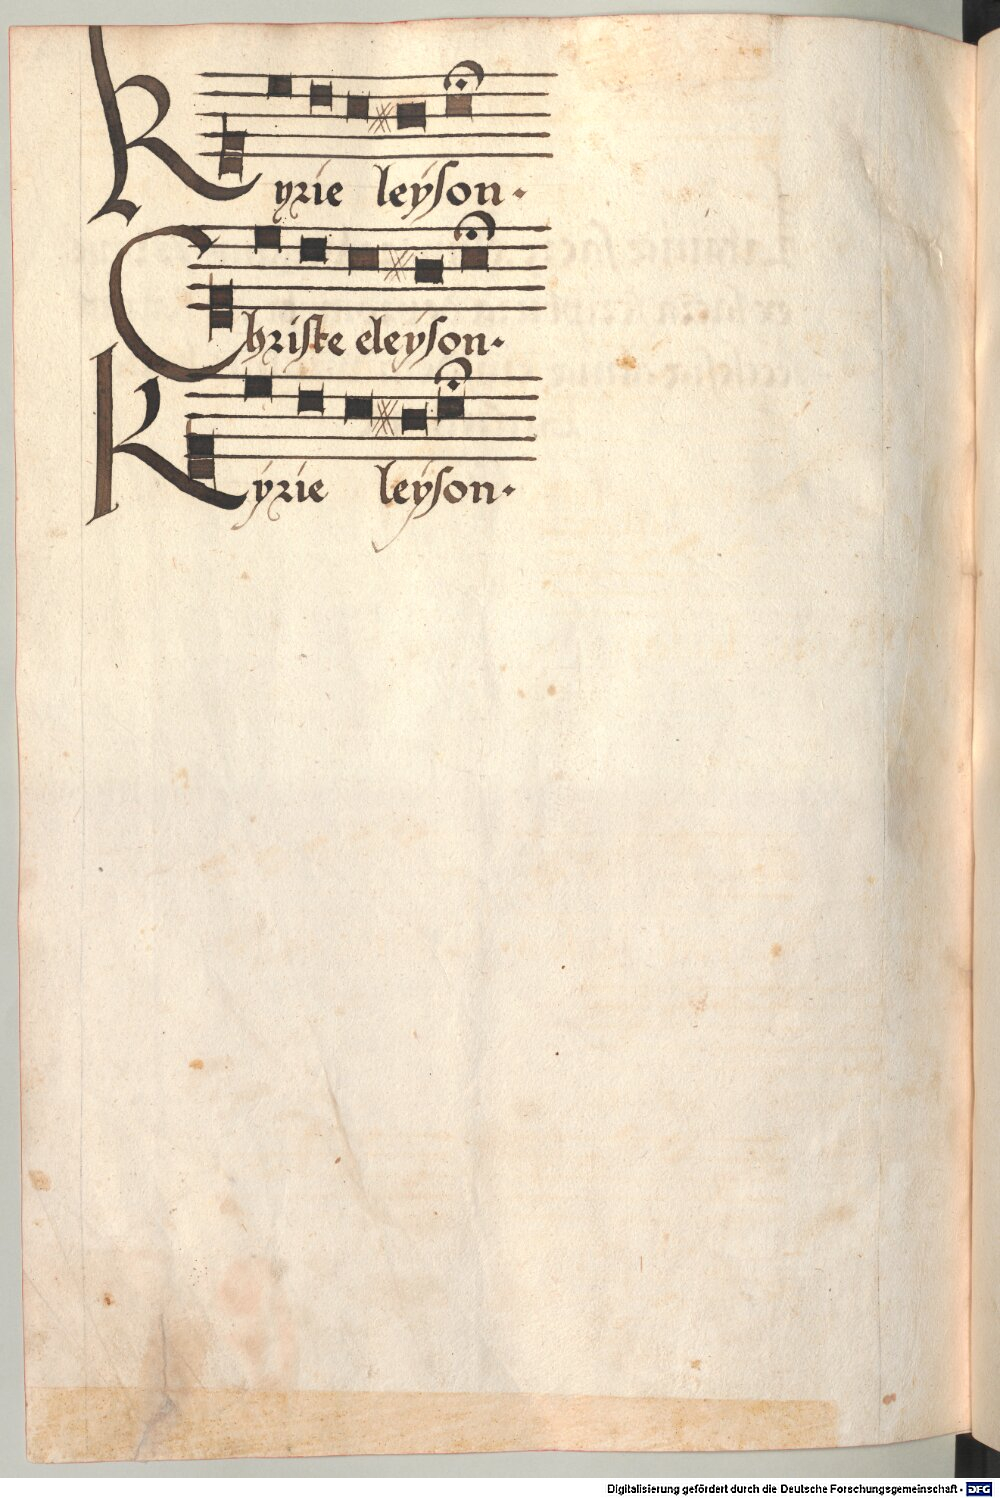 Kyrie leyson.
Christe eleyson.
Kyrie leyson.
Digitalisierung gefördert durch die Deutsche Forschungsgemeinschaft - DFG